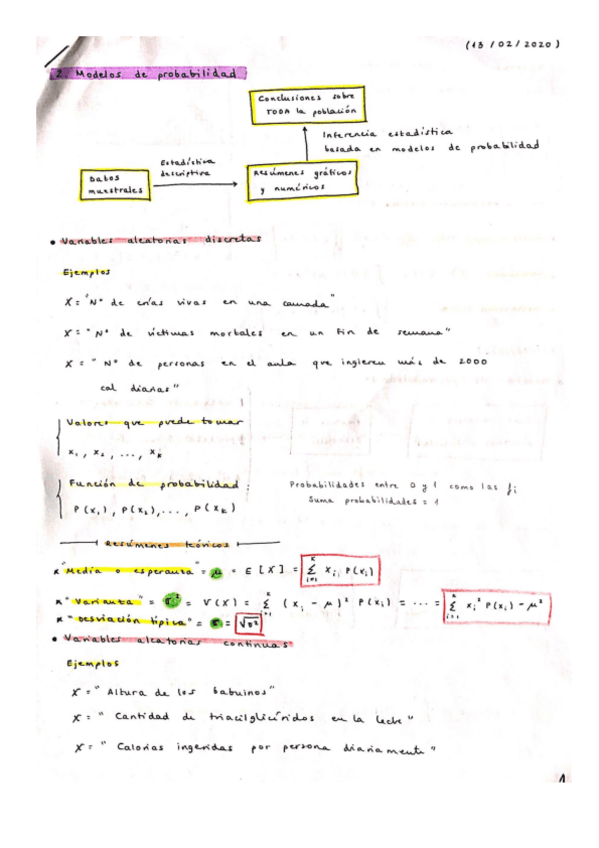 (13/02/2020)
2. Modelos de probabilidad
Conclusiones sobre
TODA la población
Inferencia estadística
basada en modelos de probabilidad
Estadística
descriptiva
Datos
muestrales
Resúmenes gráficos
y numéricos
• Variables aleatorias discretas
Ejemplos
X = "Nº de crías vivas en una camada"
X = "Nº de víctimas mortales en un fin de semana"
X = "Nº de personas en el aula que ingieren más de 2000
cal diarias"
Valores que puede tomar
x₁, x₂, ..., xₖ
Función de probabilidad:
P(x₁), P(x₂),..., P(xₖ)
Probabilidades entre 0 y 1 como las fi
Suma probabilidades = 1
Resúmenes teóricos
* "Media o esperanza" = μ = E[X] = Σᵢ₌₁ᴷ xᵢ P(xᵢ)
* "Varianza" = σ² = V(X) = Σᵢ₌₁ᴷ (xᵢ - μ)² P(xᵢ) = ... = Σᵢ₌₁ᴷ xᵢ² P(xᵢ) - μ²
* "Desviación típica" = σ = √σ²
• Variables aleatorias continuas
Ejemplos
X = "Altura de los babuinos"
X = "Cantidad de triacilglicéridos en la leche"
X = "Calorías ingeridas por persona diariamente"
1